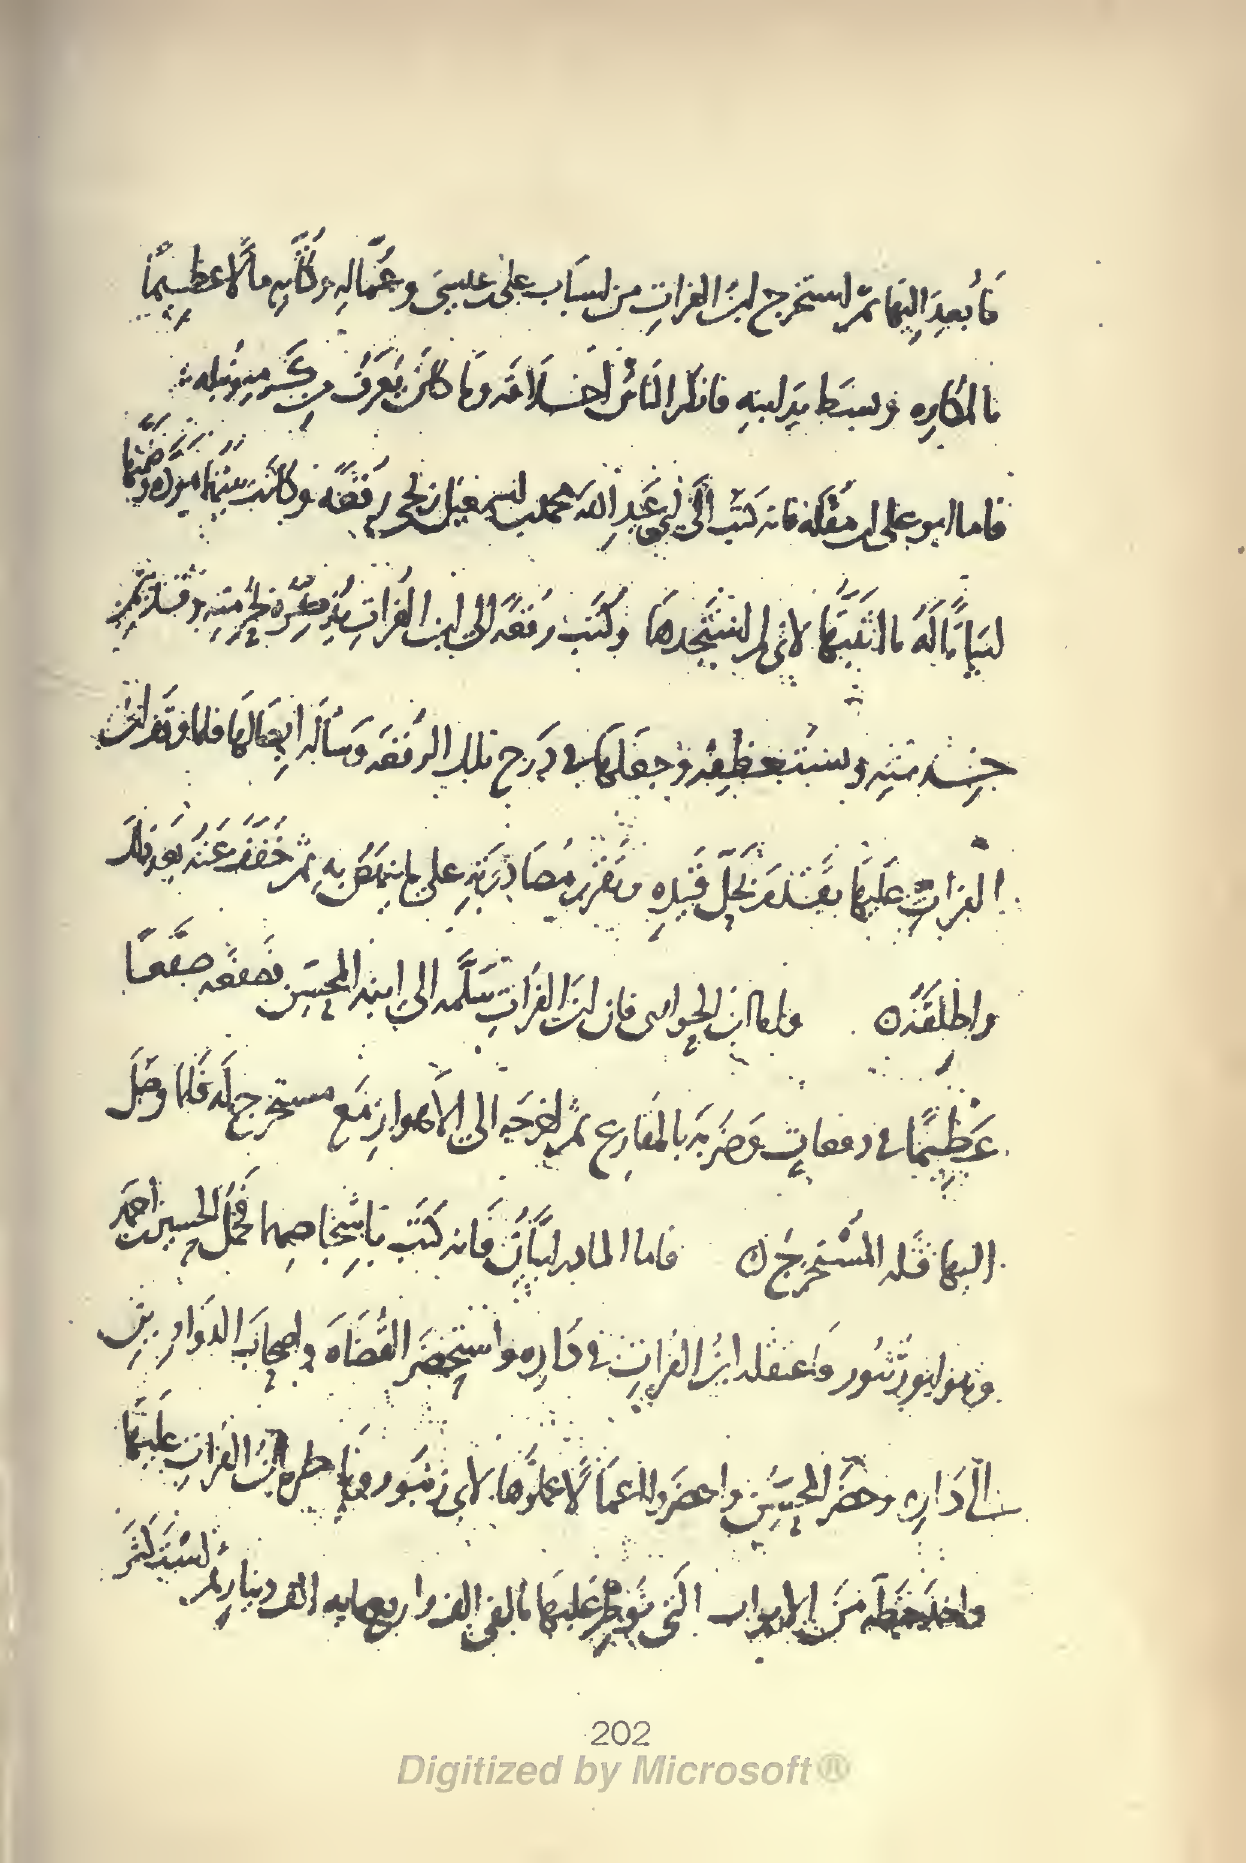 فأُبعِدَ اليها ثم استخرج ابن الفرات من اسباب علي بن عيسى وعُمّاله وكُتّابه مالًا عظيمًا
بالمكاره وبسط يد ابنه فانكر الناس اخلاقه وما كان يعرف من كرمه ونبله
فاما ابو علي ابن مقلة فانه كتب الى ابي عبد الله محمد بن اسمعيل زنجي رقعة وكانت بينهما مودة وضمنها
ابياتًا له ما اثبتها لاني لم استجدها وكتب رقعة الى ابن الفرات يذكره بحرمته وقديم
خدمته ويستعطفه وجعلها في درج تلك الرقعة وسأله ايصالها فلما وقف ابن
الفرات عليها تقدم بحل قيده وتقرير مصادرته على ما ينهض به ثم خفف عنه بعد ذلك
واطلقه ه واما ابن الحواري فان ابن الفرات سلمه الى ابنه المحسن فصفعه صفعًا
عظيمًا في دفعات وضربه بالمقارع ثم اخرجه الى الاهواز مع مستخرج له فلما وصل
اليها قتله المستخرج ه فاما المادرائيان فانه كتب باشخاصهما فحُمل الحسين بن احمد
وهو ابو زنبور واعتقله ابن الفرات في داره واستحضر القضاة واصحاب الدواوين
الى داره وحضر المحسن واحضر اعمالًا عملوها لابي زنبور وناظره ابن الفرات عليها
واخذ خطه من الابواب التي نوظر عليها بالفي الف واربعمايه الف دينار ثم استكثر
202
Digitized by Microsoft®